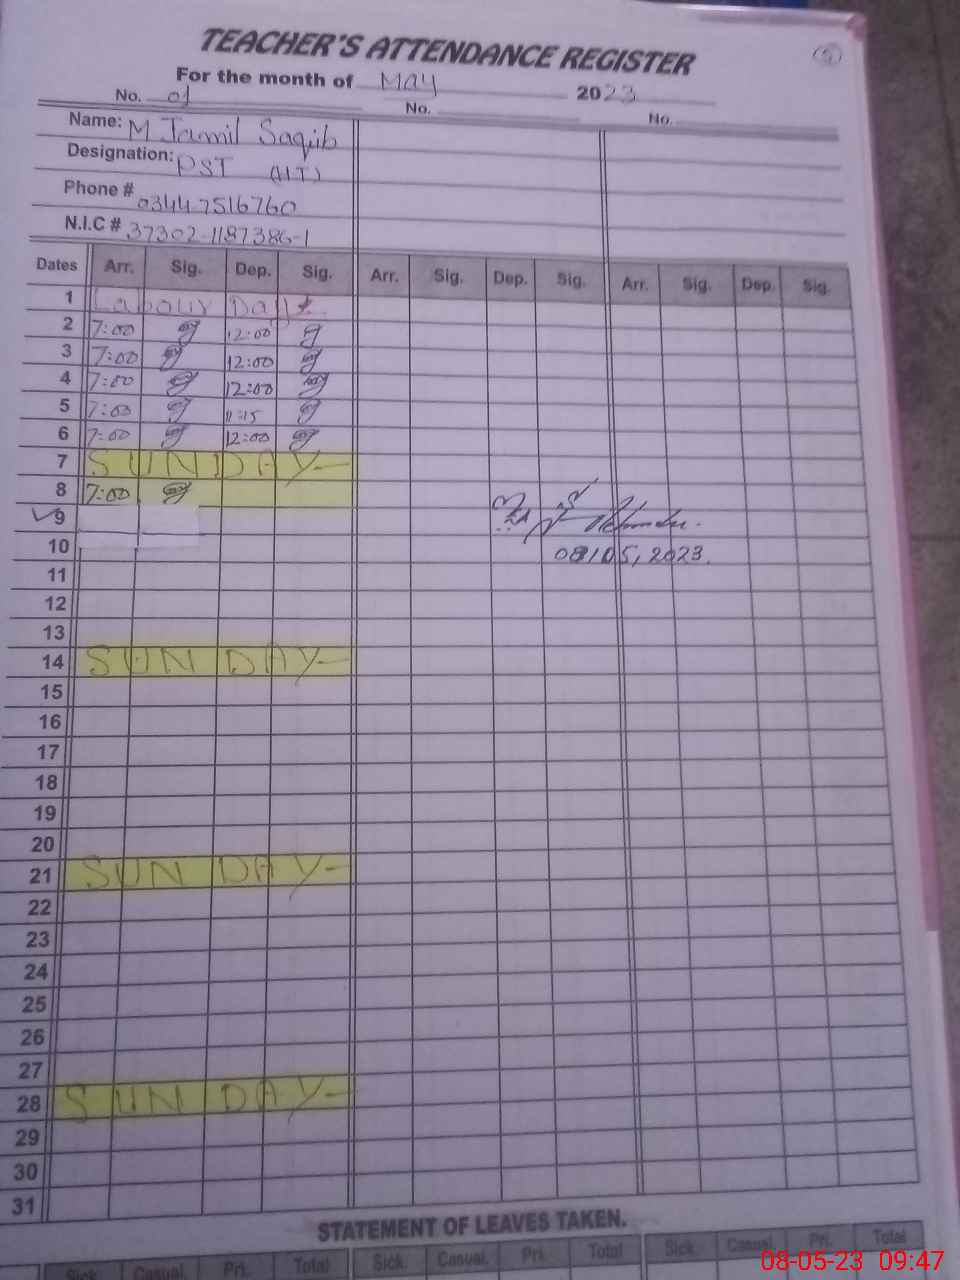 TEACHER'S ATTENDANCE REGISTER
5
For the month of May 2023
No. 01 No. No.
Name: M Jamil Saqib
Designation: PST (H.T)
Phone # 03447516760
N.I.C # 37302-1187386-1
Dates Arr. Sig. Dep. Sig. Arr. Sig. Dep. Sig. Arr. Sig. Dep. Sig.
1 Labour Day
2 7:00 12:00
3 7:00 12:00
4 7:00 12:00
5 7:00 11:15
6 7:00 12:00
7 SUNDAY
8 7:00
9
10 08/05/2023.
11
12
13
14 SUNDAY
15
16
17
18
19
20
21 SUNDAY
22
23
24
25
26
27
28 SUNDAY
29
30
31
STATEMENT OF LEAVES TAKEN.
Sick. Casual. Pri. Total Sick. Casual. Pri. Total Sick. Casual. Pri. Total
08-05-23 09:47